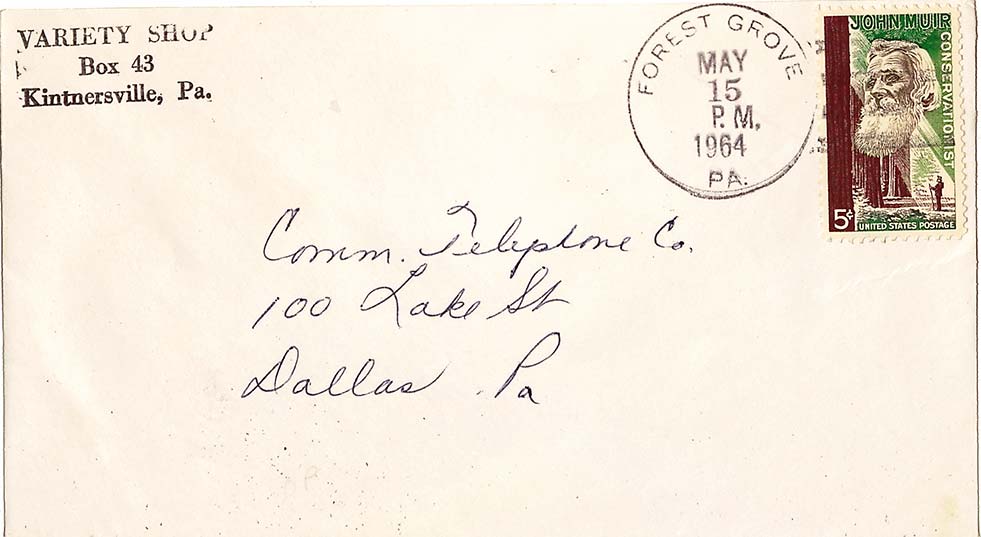 VARIETY SHOP
Box 43
Kintnersville, Pa.
FOREST GROVE
MAY
15
P.M.
1964
PA.
JOHN MUIR
CONSERVATIONIST
5¢
UNITED STATES POSTAGE
Comm. Telephone Co.
100 Lake St
Dallas Pa